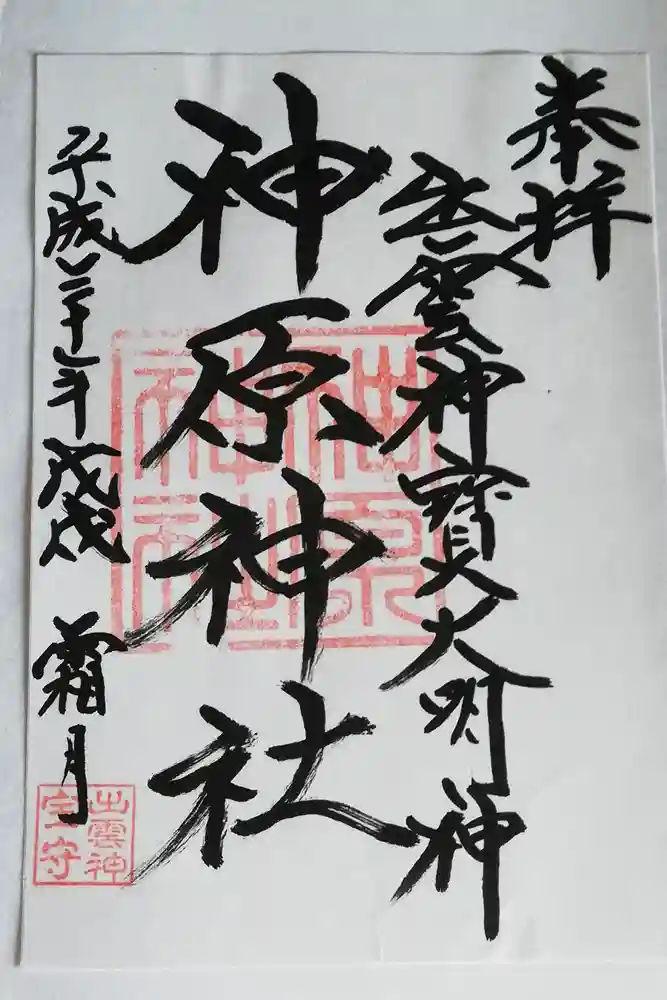 奉拝
出雲神寶大明神
神原神社
平成三十年 戊戌 霜月
神原
神社
出雲神
宝守